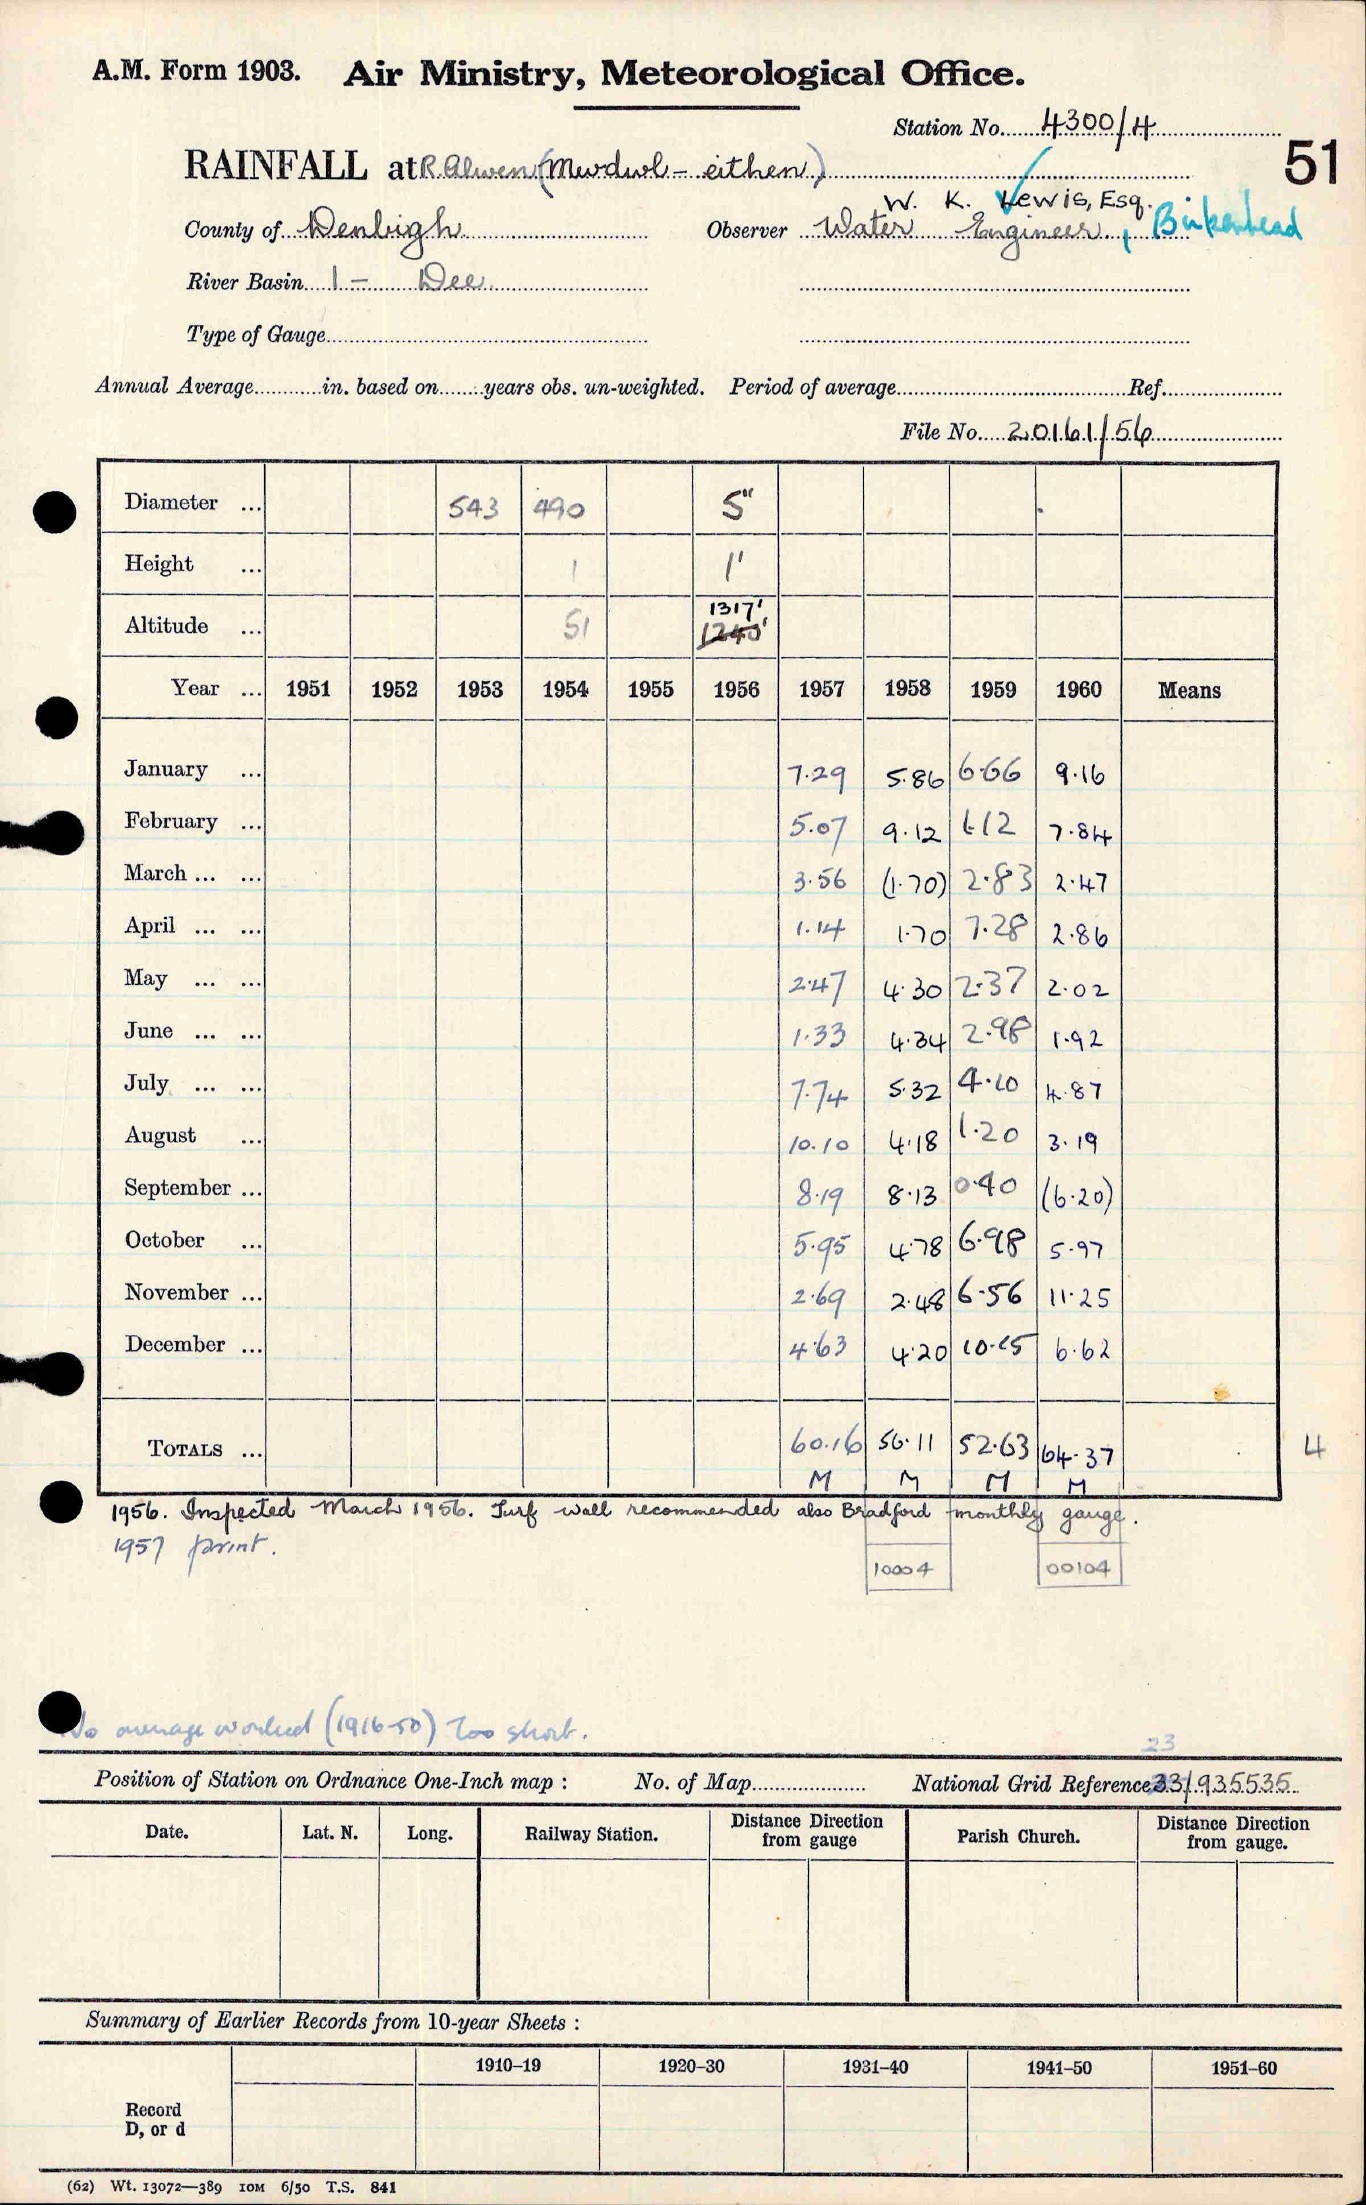 A.M. Form 1903. Air Ministry, Meteorological Office.
Station No. 4300/4
51
RAINFALL at R. Alwen (Mwdwl-eithen)
W. K. Lewis, Esq.
County of Denbigh Observer Water Engineer, Birkenhead
River Basin 1 - Dee.
Type of Gauge
Annual Average in. based on years obs. un-weighted. Period of average Ref.
File No. 20161/56
Diameter ... 543 490 5"
Height ... 1 1'
1317'
Altitude ... 51 1240'
Year ... 1951 1952 1953 1954 1955 1956 1957 1958 1959 1960 Means
January ... 7.29 5.86 6.66 9.16
February ... 5.07 9.12 1.12 7.84
March ... ... 3.56 (1.70) 2.83 2.47
April ... ... 1.14 1.70 7.28 2.86
May ... ... 2.47 4.30 2.37 2.02
June ... ... 1.33 4.34 2.98 1.92
July ... ... 7.74 5.32 4.10 4.87
August ... 10.10 4.18 1.20 3.19
September ... 8.19 8.13 0.40 (6.20)
October ... 5.95 4.78 6.98 5.97
November ... 2.69 2.48 6.56 11.25
December ... 4.63 4.20 10.15 6.62
TOTALS ... 60.16 56.11 52.63 64.37 4
M M M M
1956. Inspected March 1956. Turf wall recommended also Bradford monthly gauge.
1957 print.
10004 00104
No average worked (1916-50) Too short.
23
Position of Station on Ordnance One-Inch map : No. of Map National Grid Reference 33/935535
Date. Lat. N. Long. Railway Station. Distance Direction from gauge Parish Church. Distance Direction from gauge.
Summary of Earlier Records from 10-year Sheets :
1910–19 1920–30 1931–40 1941–50 1951–60
Record
D, or d
(62) Wt. 13072—389 10M 6/50 T.S. 841